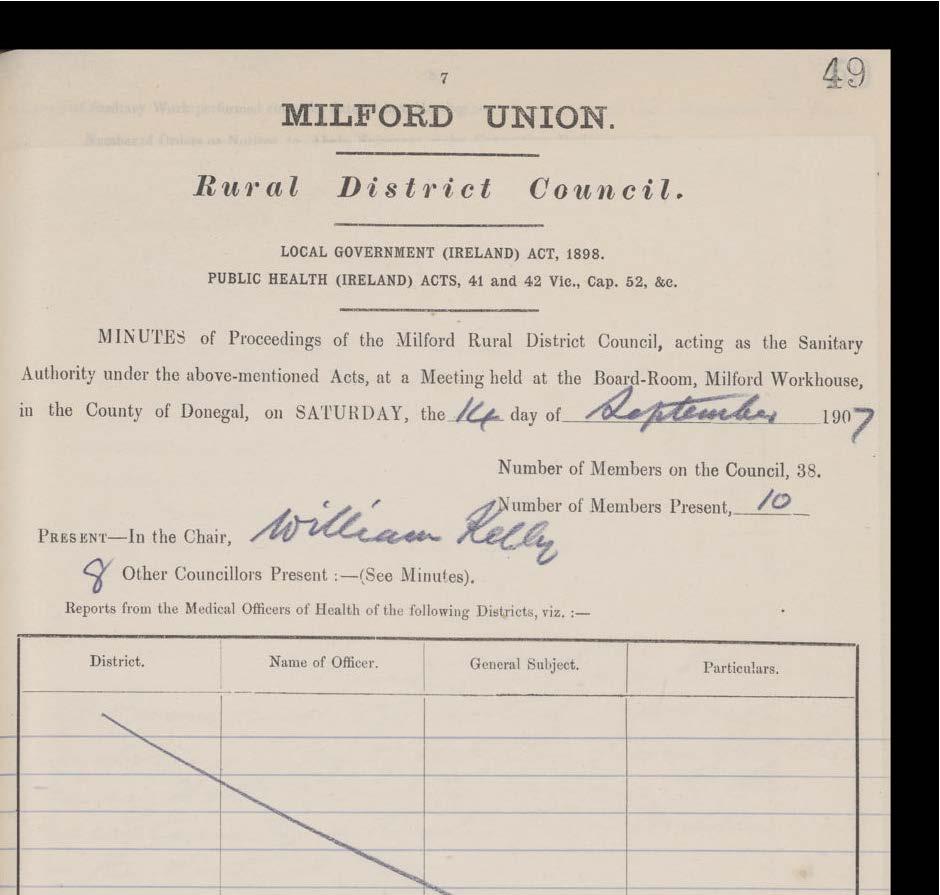 7
49
MILFORD UNION.
Rural District Council.
LOCAL GOVERNMENT (IRELAND) ACT, 1898.
PUBLIC HEALTH (IRELAND) ACTS, 41 and 42 Vic., Cap. 52, &c.
MINUTES of Proceedings of the Milford Rural District Council, acting as the Sanitary
Authority under the above-mentioned Acts, at a Meeting held at the Board-Room, Milford Workhouse,
in the County of Donegal, on SATURDAY, the 14 day of September 1907
Number of Members on the Council, 38.
Number of Members Present, 10
PRESENT—In the Chair, William Kelly
8 Other Councillors Present :—(See Minutes).
Reports from the Medical Officers of Health of the following Districts, viz. :—
District. Name of Officer. General Subject. Particulars.